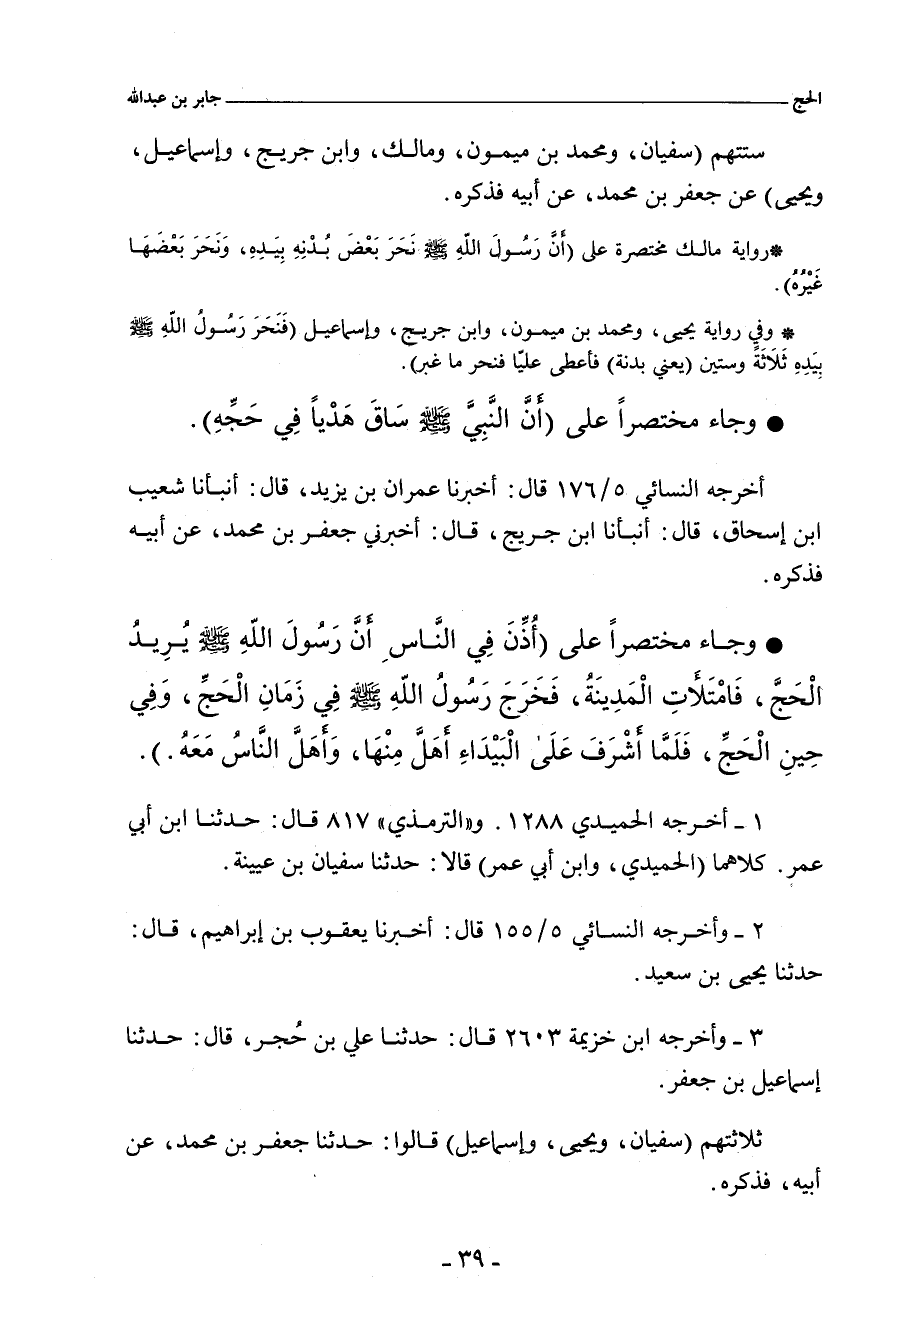 الحج ــــــــــــــــــــــــــــــ جابر بن عبدالله
ستتهم (سفيان، ومحمد بن ميمون، ومالك، وابن جريج، وإسماعيل،
ويحيى) عن جعفر بن محمد، عن أبيه فذكره.
*رواية مالك مختصرة على (أَنَّ رَسُولَ اللّهِ ﷺ نَحَرَ بَعْضَ بُدْنِهِ بِيَدِهِ، وَنَحَرَ بَعْضَهَا
غَيْرُهُ).
* وفي رواية يحيى، ومحمد بن ميمون، وابن جريج، وإسماعيل (فَنَحَرَ رَسُولُ اللّهِ ﷺ
بِيَدِهِ ثَلَاثَةً وستين (يعني بدنة) فأعطى عليًا فنحر ما غبر).
● وجاء مختصراً على (أَنَّ النَّبِيَّ ﷺ سَاقَ هَدْياً فِي حَجِّهِ).
أخرجه النسائي ١٧٦/٥ قال: أخبرنا عمران بن يزيد، قال: أنبأنا شعيب
ابن إسحاق، قال: أنبأنا ابن جريج، قال: أخبرني جعفر بن محمد، عن أبيه
فذكره.
● وجاء مختصراً على (أُذِّنَ فِي النَّاسِ أَنَّ رَسُولَ اللّهِ ﷺ يُرِيدُ
الْحَجَّ، فَامْتَلَأَتِ الْمَدِينَةُ، فَخَرَجَ رَسُولُ اللّهِ ﷺ فِي زَمَانِ الْحَجِّ، وَفِي
حِينِ الْحَجِّ، فَلَمَّا أَشْرَفَ عَلَىٰ الْبَيْدَاءِ أَهَلَّ مِنْهَا، وَأَهَلَّ النَّاسُ مَعَهُ.).
١ ـ أخرجه الحميدي ١٢٨٨. و«الترمذي» ٨١٧ قال: حدثنا ابن أبي
عمر. كلاهما (الحميدي، وابن أبي عمر) قالا: حدثنا سفيان بن عيينة.
٢ ـ وأخرجه النسائي ١٥٥/٥ قال: أخبرنا يعقوب بن إبراهيم، قال:
حدثنا يحيى بن سعيد.
٣ ـ وأخرجه ابن خزيمة ٢٦٠٣ قال: حدثنا علي بن حُجر، قال: حدثنا
إسماعيل بن جعفر.
ثلاثتهم (سفيان، ويحيى، وإسماعيل) قالوا: حدثنا جعفر بن محمد، عن
أبيه، فذكره.
ـ ٣٩ ـ